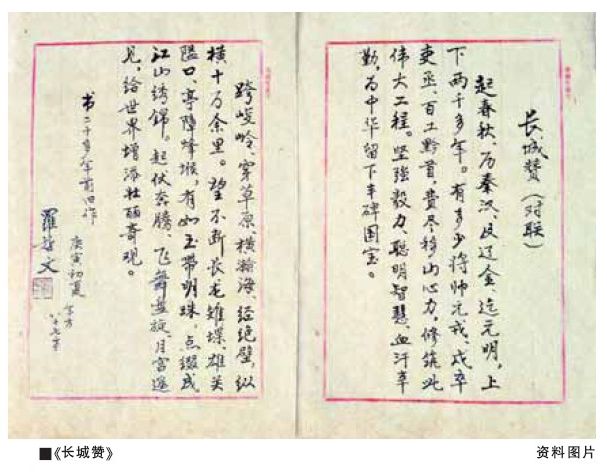 长城赞(对联)
起春秋、历秦汉、及辽金、迄元明,上
下两千多年。有多少将帅元戎、戍卒
吏丞、百工黔首,费尽移山心力,修筑此
伟大工程。坚强毅力、聪明智慧、血汗辛
勤,为中华留下丰碑国宝。
跨峻岭、穿草原、横瀚海、经绝壁,纵
横十万余里。望不断长龙雉堞、雄关
隘口、亭障烽堠,有如玉带明珠,点缀成
江山绣锦。起伏奔腾、飞舞盘旋、月宫遥
见,给世界增添壮丽奇观。
书二十多年前旧作
庚寅初夏
八十七
羅哲文
■《长城赞》
资料图片